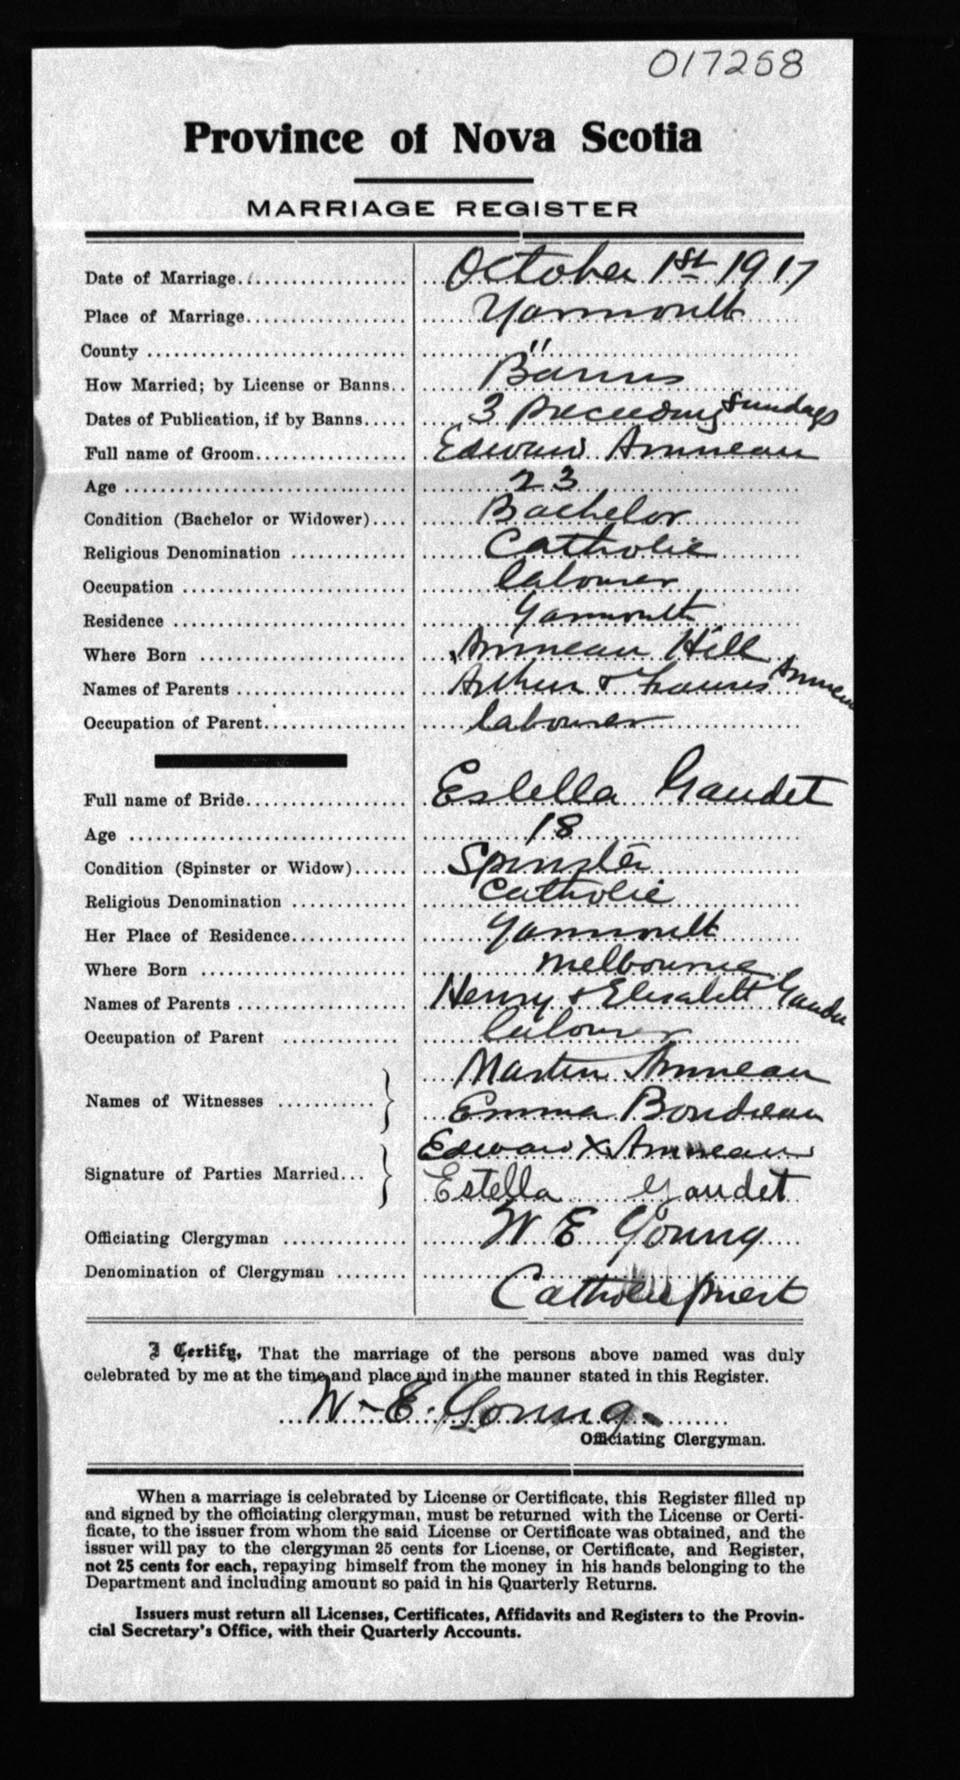 017258
Province of Nova Scotia
MARRIAGE REGISTER
Date of Marriage October 1st 1917
Place of Marriage Yarmouth
County "
How Married; by License or Banns Banns
Dates of Publication, if by Banns 3 preceeding Sundays
Full name of Groom Edward Amneau
Age 23
Condition (Bachelor or Widower) Bachelor
Religious Denomination Catholic
Occupation labourer
Residence Yarmouth
Where Born Amneau Hill
Names of Parents Arthur & Amneau
Occupation of Parent labourer
Full name of Bride Estella Gaudet
Age 18
Condition (Spinster or Widow) Spinster
Religious Denomination Catholic
Her Place of Residence Yarmouth
Where Born Melbourne
Names of Parents Henry & Elisabeth Gaudet
Occupation of Parent labourer
Names of Witnesses Martin Amneau
Emma Boudreau
Signature of Parties Married Edward X Amneau
Estella Gaudet
Officiating Clergyman W E Young
Denomination of Clergyman Catholic priest
I Certify, That the marriage of the persons above named was duly
celebrated by me at the time and place and in the manner stated in this Register.
W. E. Young
Officiating Clergyman.
When a marriage is celebrated by License or Certificate, this Register filled up
and signed by the officiating clergyman, must be returned with the License or Certi-
ficate, to the issuer from whom the said License or Certificate was obtained, and the
issuer will pay to the clergyman 25 cents for License, or Certificate, and Register,
not 25 cents for each, repaying himself from the money in his hands belonging to the
Department and including amount so paid in his Quarterly Returns.
Issuers must return all Licenses, Certificates, Affidavits and Registers to the Provin-
cial Secretary's Office, with their Quarterly Accounts.